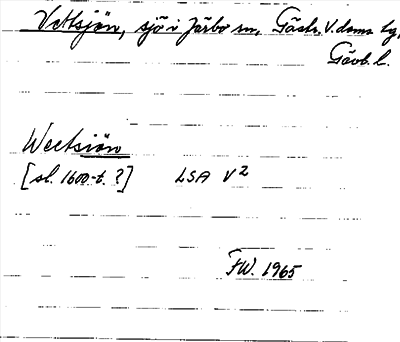 Vettsjön, sjö i Järbo sn, Gästr. V. doms hg,
Gävb. l.
Weetsiön
[sl. 1600-t. ?] LSA V²
FW. 1965